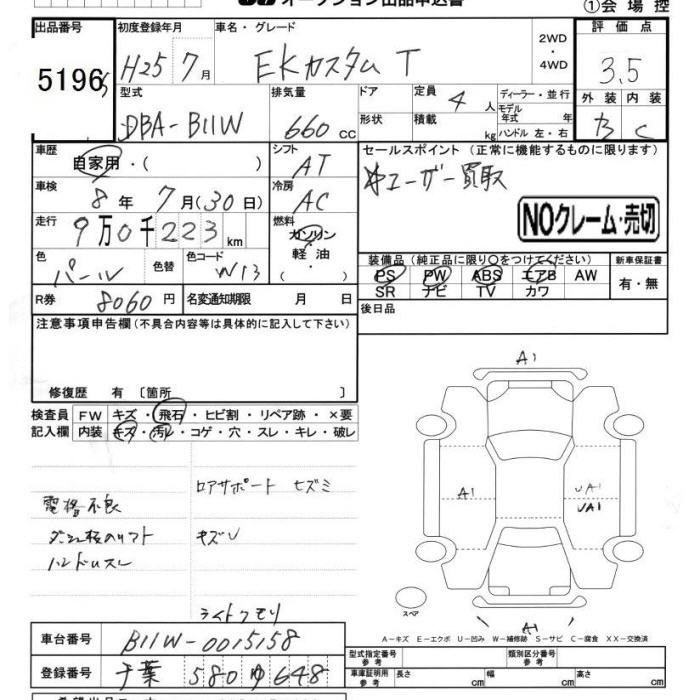 オークション出品申込書
①会場控
出品番号 初度登録年月 車名・グレード 2WD・4WD 評価点
5196 H25 7月 EKカスタム T 3.5
型式 排気量 ドア 定員 4人 ディーラー・並行 外装 内装
DBA-B11W 660cc 形状 積載 kg モデル年式 年 ハンドル 左・右 C
車歴 自家用・( ) シフト AT セールスポイント (正常に機能するものに限ります)
車検 8年 7月(30日) 冷房 AC ユーザー買取
走行 9万0千223km 燃料 ガソリン・軽油・( ) NOクレーム・売切
色 パール 色替 色コード W13 装備品 (純正品に限り○をつけてください) 新車保証書
PS PW ABS エアB AW 有・無
SR ナビ TV カワ
R券 8060円 名変通知期限 月 日 後日品
注意事項申告欄(不具合内容等は具体的に記入して下さい)
修復歴 有 〔箇所 〕
検査員 FW キズ・飛石・ヒビ割・リペア跡・×要
記入欄 内装 キズ・汚レ・コゲ・穴・スレ・キレ・破レ
A1
ロアサポート ヒズミ
A1
UA1
UA1
電格不良
キズU
ハンドルスレ
スペア
ライトクモリ
A1
A−キズ E−エクボ U−凹み W−補修跡 S−サビ C−腐食 XX−交換済
車台番号 B11W-0015158 型式指定番号 参考 類別区分番号 参考
登録番号 千葉 580 ゆ 648 車庫証明用 参考 長さ cm 幅 cm 高さ cm